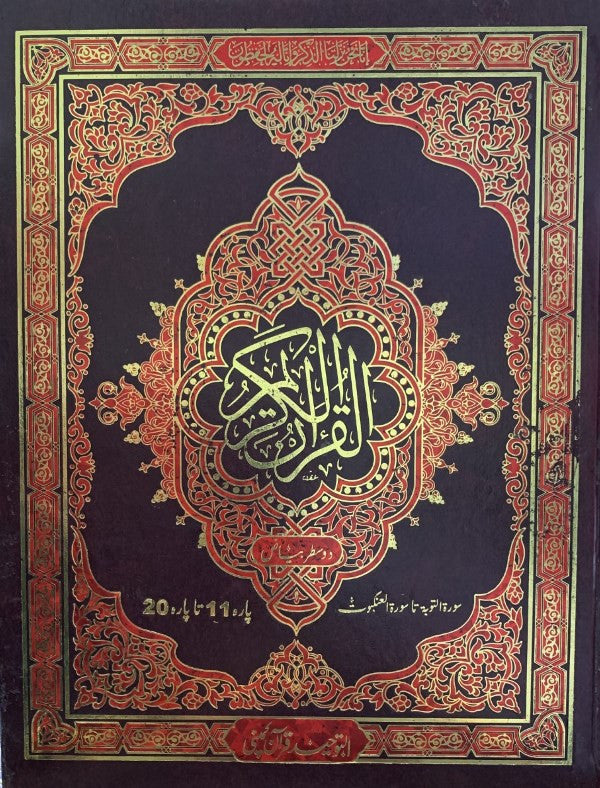 إنا نحن نزلنا الذكر وإنا له لحفظون
القرآن الكريم
دو سطر
سورة التوبۃ تا سورة العنکبوت
پارہ 11 تا پارہ 20
التوحید قرآن کمپنی